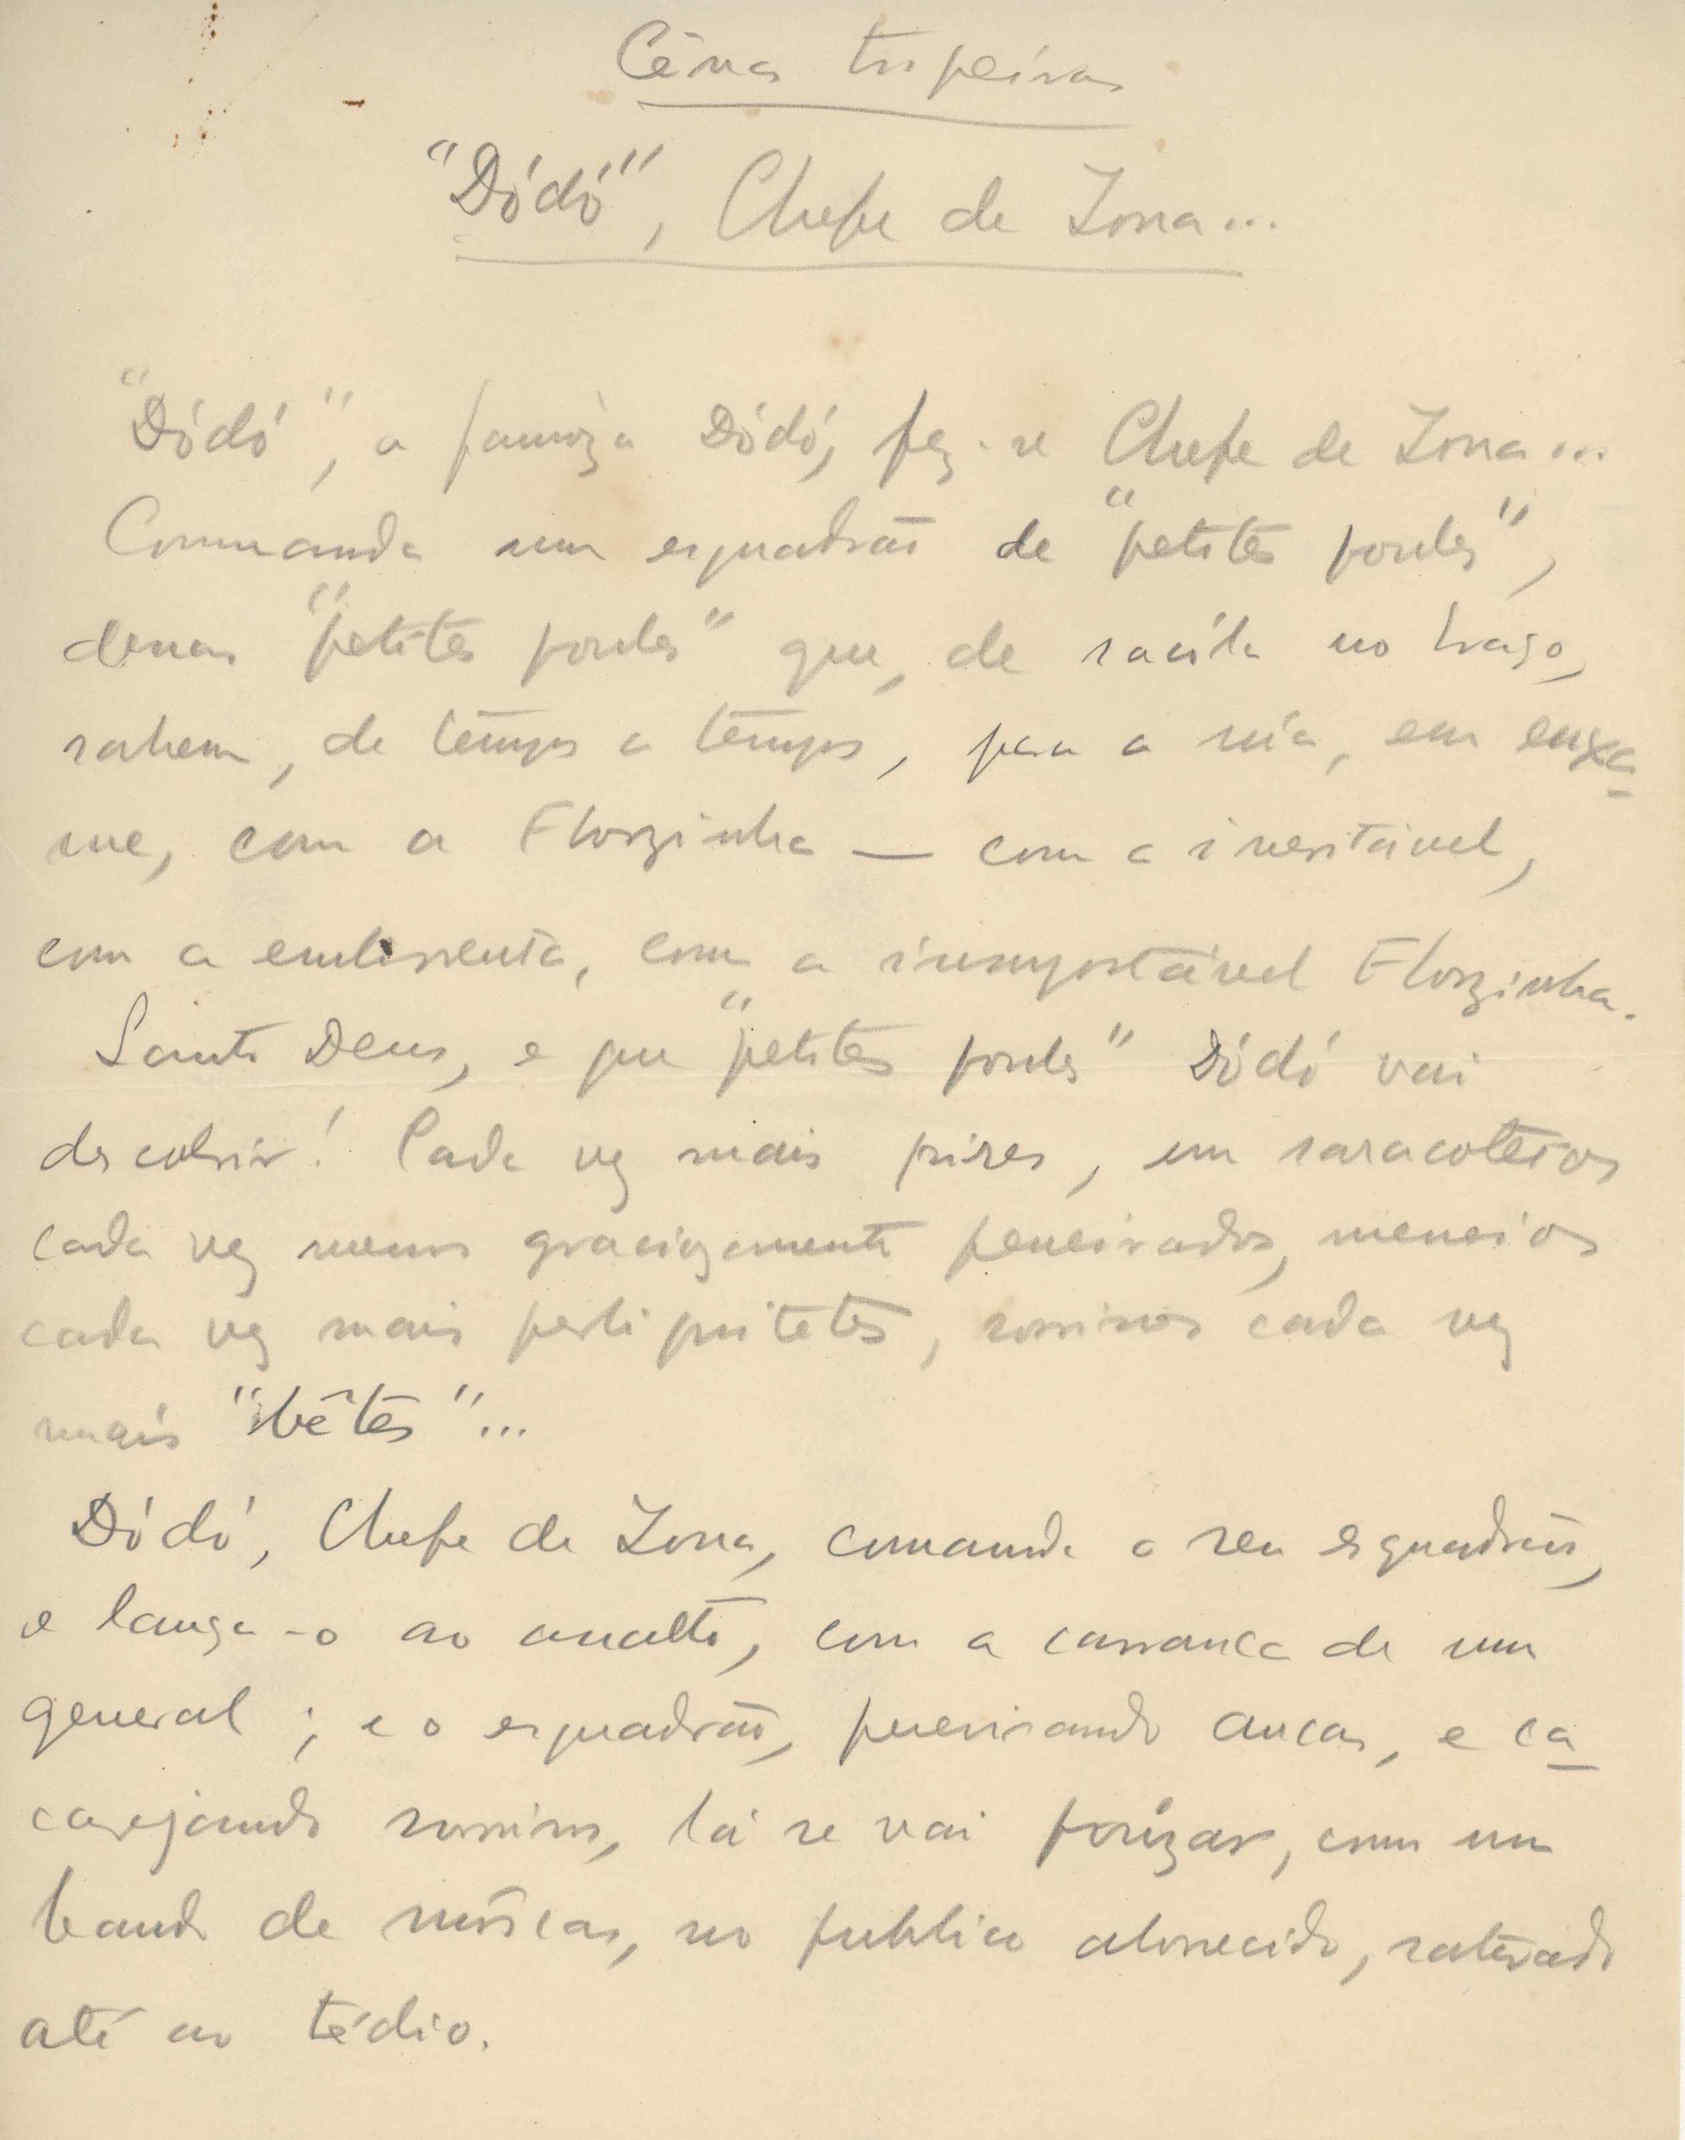 Cênas tripeiras
"Dódó", Chefe de Zona...
"Dódó", a famóza Dódó, fez-se Chefe de Zona...
Commanda um esquadrão de "petites poules",
dessas "petites poules" que, de sacóla no braço,
sahem, de têmpos a têmpos, para a rúa, em enxa
me, com a Florzinha — com a inevitável,
com a enlissenta, com a insuportável Florzinha.
Santo Deus, e que "petites poules" Dódó vai
descobrir! Cada vez mais pires, em saracoteios
cada vez menos graciozamente peneirados, meneios
cada vez mais perlipitetes, sorrisos cada vez
mais "bêtes"...
Dódó, Chefe de Zona, comanda o seu esquadrão,
e lança-o ao assalto, com a carranca de um
general; e o esquadrão, peneirando ancas, e ca
carejando sorrisos, lá se vai pouzar, como um
bando de môscas, no publico aborrecido, saturado
até ao tédio.